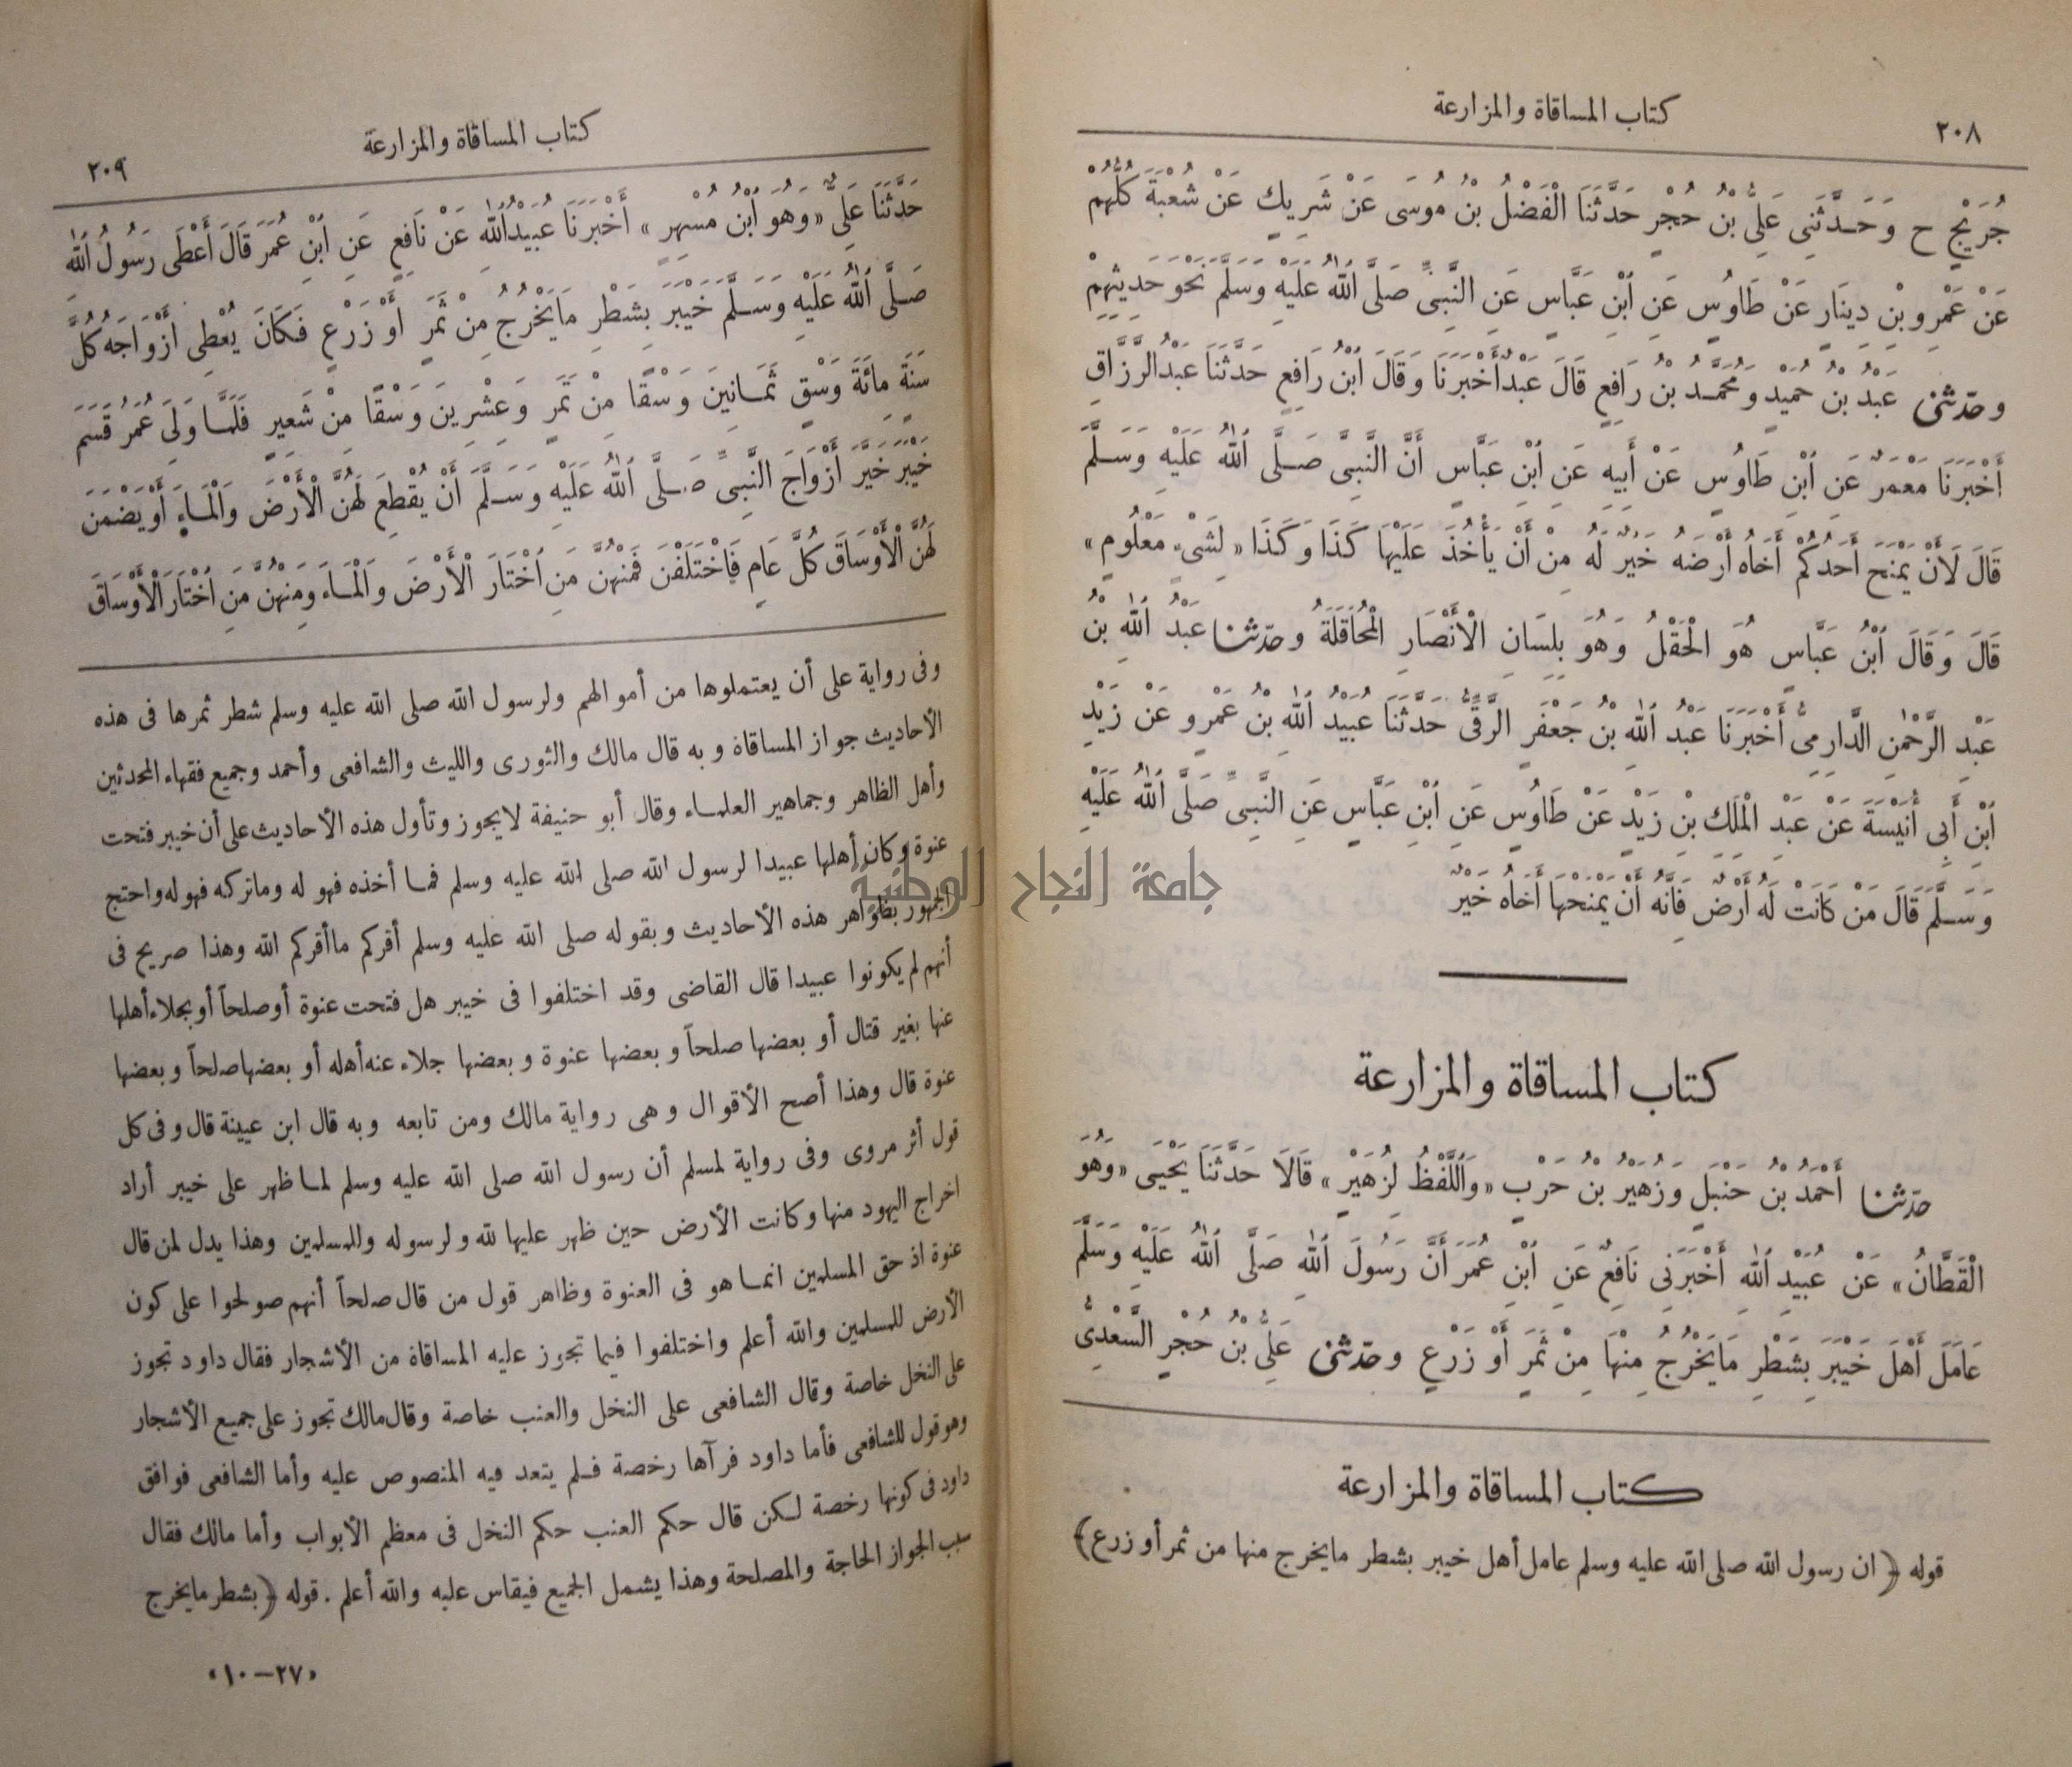 ٢٠٨
كتاب المساقاة والمزارعة
جُرَيْجٍ ح وَحَدَّثَنِى عَلِىُّ بْنُ حُجْرٍ حَدَّثَنَا الْفَضْلُ بْنُ مُوسَى عَنْ شَرِيكٍ عَنْ شُعْبَةَ كُلُّهُمْ
عَنْ عَمْرِو بْنِ دِينَارٍ عَنْ طَاوُسٍ عَنِ ابْنِ عَبَّاسٍ عَنِ النَّبِىِّ صَلَّى اللهُ عَلَيْهِ وَسَلَّمَ نَحْوَ حَدِيثِهِمْ
و حدثنى عَبْدُ بْنُ حُمَيْدٍ وَمُحَمَّدُ بْنُ رَافِعٍ قَالَ عَبْدٌ أَخْبَرَنَا وَقَالَ ابْنُ رَافِعٍ حَدَّثَنَا عَبْدُ الرَّزَّاقِ
أَخْبَرَنَا مَعْمَرٌ عَنِ ابْنِ طَاوُسٍ عَنْ أَبِيهِ عَنِ ابْنِ عَبَّاسٍ أَنَّ النَّبِىَّ صَلَّى اللهُ عَلَيْهِ وَسَلَّمَ
قَالَ لَأَنْ يَمْنَحَ أَحَدُكُمْ أَخَاهُ أَرْضَهُ خَيْرٌ لَهُ مِنْ أَنْ يَأْخُذَ عَلَيْهَا كَذَا وَكَذَا « لِشَىْءٍ مَعْلُومٍ »
قَالَ وَقَالَ ابْنُ عَبَّاسٍ هُوَ الْحَقْلُ وَهُوَ بِلِسَانِ الْأَنْصَارِ الْمُحَاقَلَةُ و حدثنا عَبْدُ اللهِ بْنُ
عَبْدِ الرَّحْمٰنِ الدَّارِمِىُّ أَخْبَرَنَا عَبْدُ اللهِ بْنُ جَعْفَرٍ الرَّقِّىُّ حَدَّثَنَا عُبَيْدُ اللهِ بْنُ عَمْرٍو عَنْ زَيْدِ
ابْنِ أَبِى أُنَيْسَةَ عَنْ عَبْدِ الْمَلِكِ بْنِ زَيْدٍ عَنْ طَاوُسٍ عَنِ ابْنِ عَبَّاسٍ عَنِ النَّبِىِّ صَلَّى اللهُ عَلَيْهِ
وَسَلَّمَ قَالَ مَنْ كَانَتْ لَهُ أَرْضٌ فَإِنَّهُ أَنْ يَمْنَحَهَا أَخَاهُ خَيْرٌ
كتاب المساقاة والمزارعة
حدثنا أَحْمَدُ بْنُ حَنْبَلٍ وَزُهَيْرُ بْنُ حَرْبٍ « وَاللَّفْظُ لِزُهَيْرٍ » قَالَا حَدَّثَنَا يَحْيَى « وَهُوَ
الْقَطَّانُ » عَنْ عُبَيْدِ اللهِ أَخْبَرَنِى نَافِعٌ عَنِ ابْنِ عُمَرَ أَنَّ رَسُولَ اللهِ صَلَّى اللهُ عَلَيْهِ وَسَلَّمَ
عَامَلَ أَهْلَ خَيْبَرَ بِشَطْرِ مَا يَخْرُجُ مِنْهَا مِنْ ثَمَرٍ أَوْ زَرْعٍ و حدثنى عَلِىُّ بْنُ حُجْرٍ السَّعْدِىُّ
كتاب المساقاة والمزارعة
قوله ﴿ ان رسول الله صلى الله عليه وسلم عامل أهل خيبر بشطر مايخرج منها من ثمر أو زرع ﴾
كتاب المساقاة والمزارعة
٢٠٩
حَدَّثَنَا عَلِىٌّ « وَهُوَ ابْنُ مُسْهِرٍ » أَخْبَرَنَا عُبَيْدُ اللهِ عَنْ نَافِعٍ عَنِ ابْنِ عُمَرَ قَالَ أَعْطَى رَسُولُ اللهِ
صَلَّى اللهُ عَلَيْهِ وَسَلَّمَ خَيْبَرَ بِشَطْرِ مَا يَخْرُجُ مِنْ ثَمَرٍ أَوْ زَرْعٍ فَكَانَ يُعْطِى أَزْوَاجَهُ كُلَّ
سَنَةٍ مِائَةَ وَسْقٍ ثَمَانِينَ وَسْقًا مِنْ تَمْرٍ وَعِشْرِينَ وَسْقًا مِنْ شَعِيرٍ فَلَمَّا وَلِىَ عُمَرُ قَسَمَ
خَيْبَرَ خَيَّرَ أَزْوَاجَ النَّبِىِّ صَلَّى اللهُ عَلَيْهِ وَسَلَّمَ أَنْ يُقْطِعَ لَهُنَّ الْأَرْضَ وَالْمَاءَ أَوْ يَضْمَنَ
لَهُنَّ الْأَوْسَاقَ كُلَّ عَامٍ فَاخْتَلَفْنَ فَمِنْهُنَّ مَنِ اخْتَارَ الْأَرْضَ وَالْمَاءَ وَمِنْهُنَّ مَنِ اخْتَارَ الْأَوْسَاقَ
وفى رواية على أن يعتملوها من أموالهم ولرسول الله صلى الله عليه وسلم شطر ثمرها فى هذه
الأحاديث جواز المساقاة وبه قال مالك والثورى والليث والشافعى وأحمد وجميع فقهاء المحدثين
وأهل الظاهر وجماهير العلماء وقال أبو حنيفة لايجوز وتأول هذه الأحاديث على أن خيبر فتحت
عنوة وكان أهلها عبيدا لرسول الله صلى الله عليه وسلم فما أخذه فهو له وماتركه فهو له واحتج
الجمهور بظواهر هذه الأحاديث وبقوله صلى الله عليه وسلم أقركم ماأقركم الله وهذا صريح فى
أنهم لم يكونوا عبيدا قال القاضى وقد اختلفوا فى خيبر هل فتحت عنوة أوصلحاً أوبجلاء أهلها
عنها بغير قتال أو بعضها صلحاً وبعضها عنوة وبعضها جلاء عنه أهله أو بعضها صلحاً وبعضها
عنوة قال وهذا أصح الأقوال وهى رواية مالك ومن تابعه وبه قال ابن عيينة قال وفى كل
قول أثر مروى وفى رواية لمسلم أن رسول الله صلى الله عليه وسلم لما ظهر على خيبر أراد
اخراج اليهود منها وكانت الأرض حين ظهر عليها لله ولرسوله وللمسلمين وهذا يدل لمن قال
عنوة اذ حق المسلمين انما هو فى العنوة وظاهر قول من قال صلحاً أنهم صولحوا على كون
الأرض للمسلمين والله أعلم واختلفوا فيما تجوز عليه المساقاة من الأشجار فقال داود تجوز
على النخل خاصة وقال الشافعى على النخل والعنب خاصة وقال مالك تجوز على جميع الأشجار
وهو قول للشافعى فأما داود فرآها رخصة فلم يتعد فيه المنصوص عليه وأما الشافعى فوافق
داود فى كونها رخصة لكن قال حكم العنب حكم النخل فى معظم الأبواب وأما مالك فقال
سبب الجواز الحاجة والمصلحة وهذا يشمل الجميع فيقاس عليه والله أعلم . قوله ﴿ بشطر مايخرج
« ٢٧ – ١٠ »
جامعة النجاح الوطنية